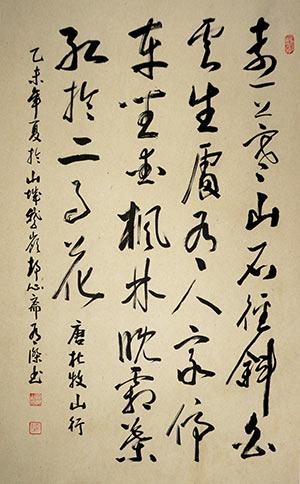 遠上寒山石徑斜白
雲生處有人家停
車坐愛楓林晚霜葉
紅於二月花
唐杜牧山行
乙未年夏於山城嶺心齋書